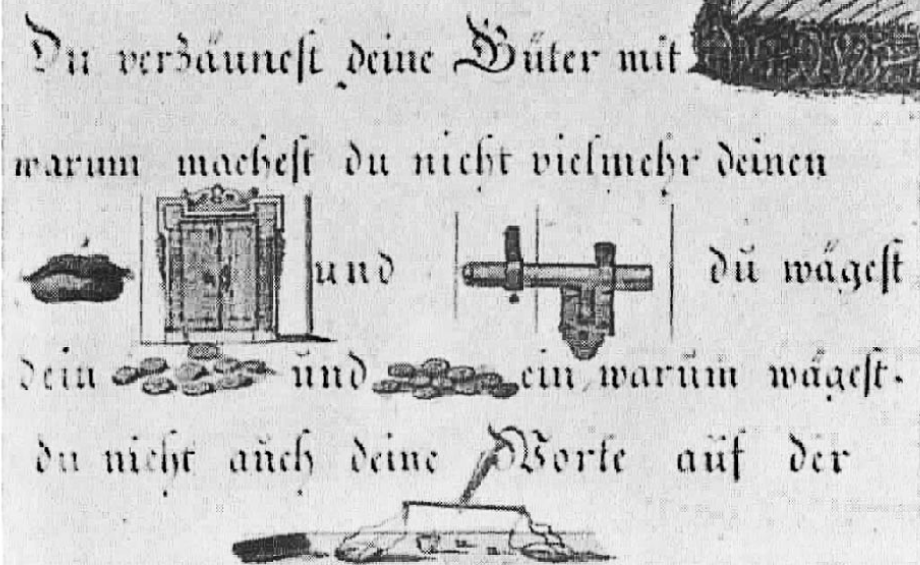 Du verzäunest deine Güter mit
warum machest du nicht vielmehr deinen
und du wägest
dein und ein warum wägest
du nicht auch deine Worte auf der